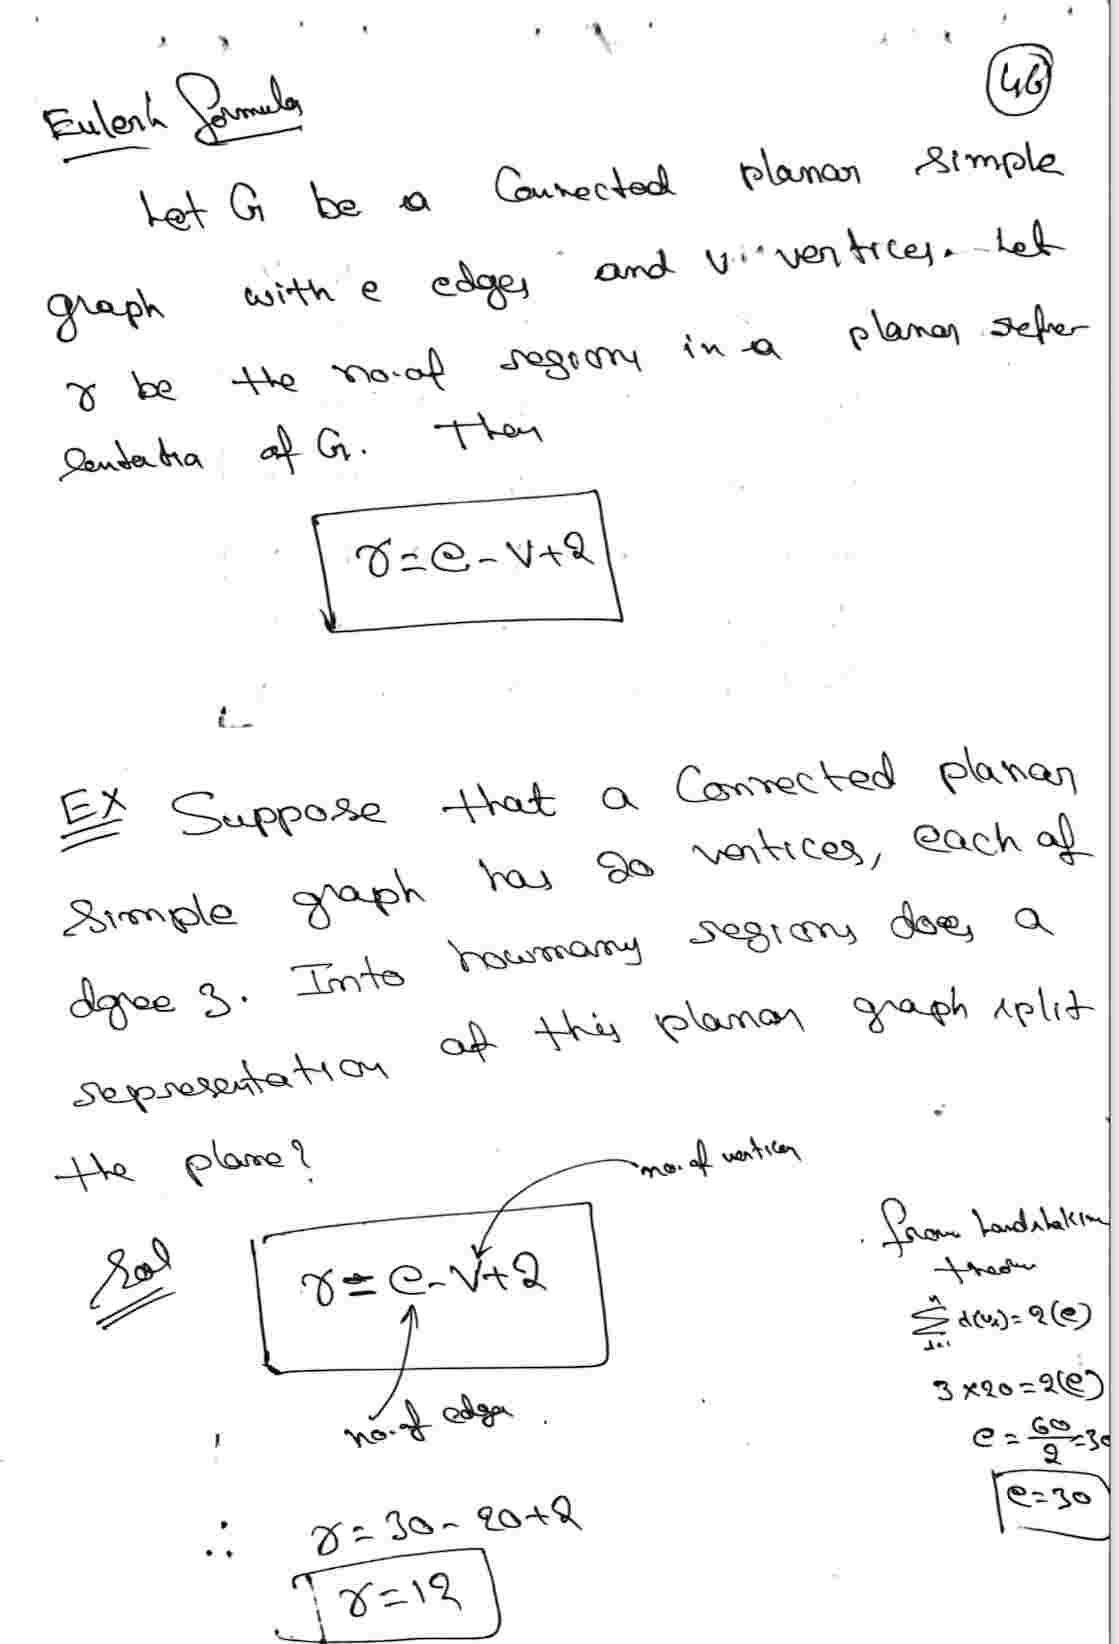 46
Euler's formula
Let G be a Connected planar simple
graph with e edges and v vertices. Let
r be the no.of regions in a planar repre
sentation of G. Then
r = e - v + 2
EX Suppose that a Connected planar
simple graph has 20 vertices, each of
dgree 3. Into howmany regions does a
representation of this planar graph split
the plane?
no. of vertices
Sol
r = e - v + 2
no. of edges
from handshaking
theorem
n
∑ d(vi) = 2(e)
i=1
3 × 20 = 2(e)
e = 60/2 = 30
e = 30
∴ r = 30 - 20 + 2
r = 12